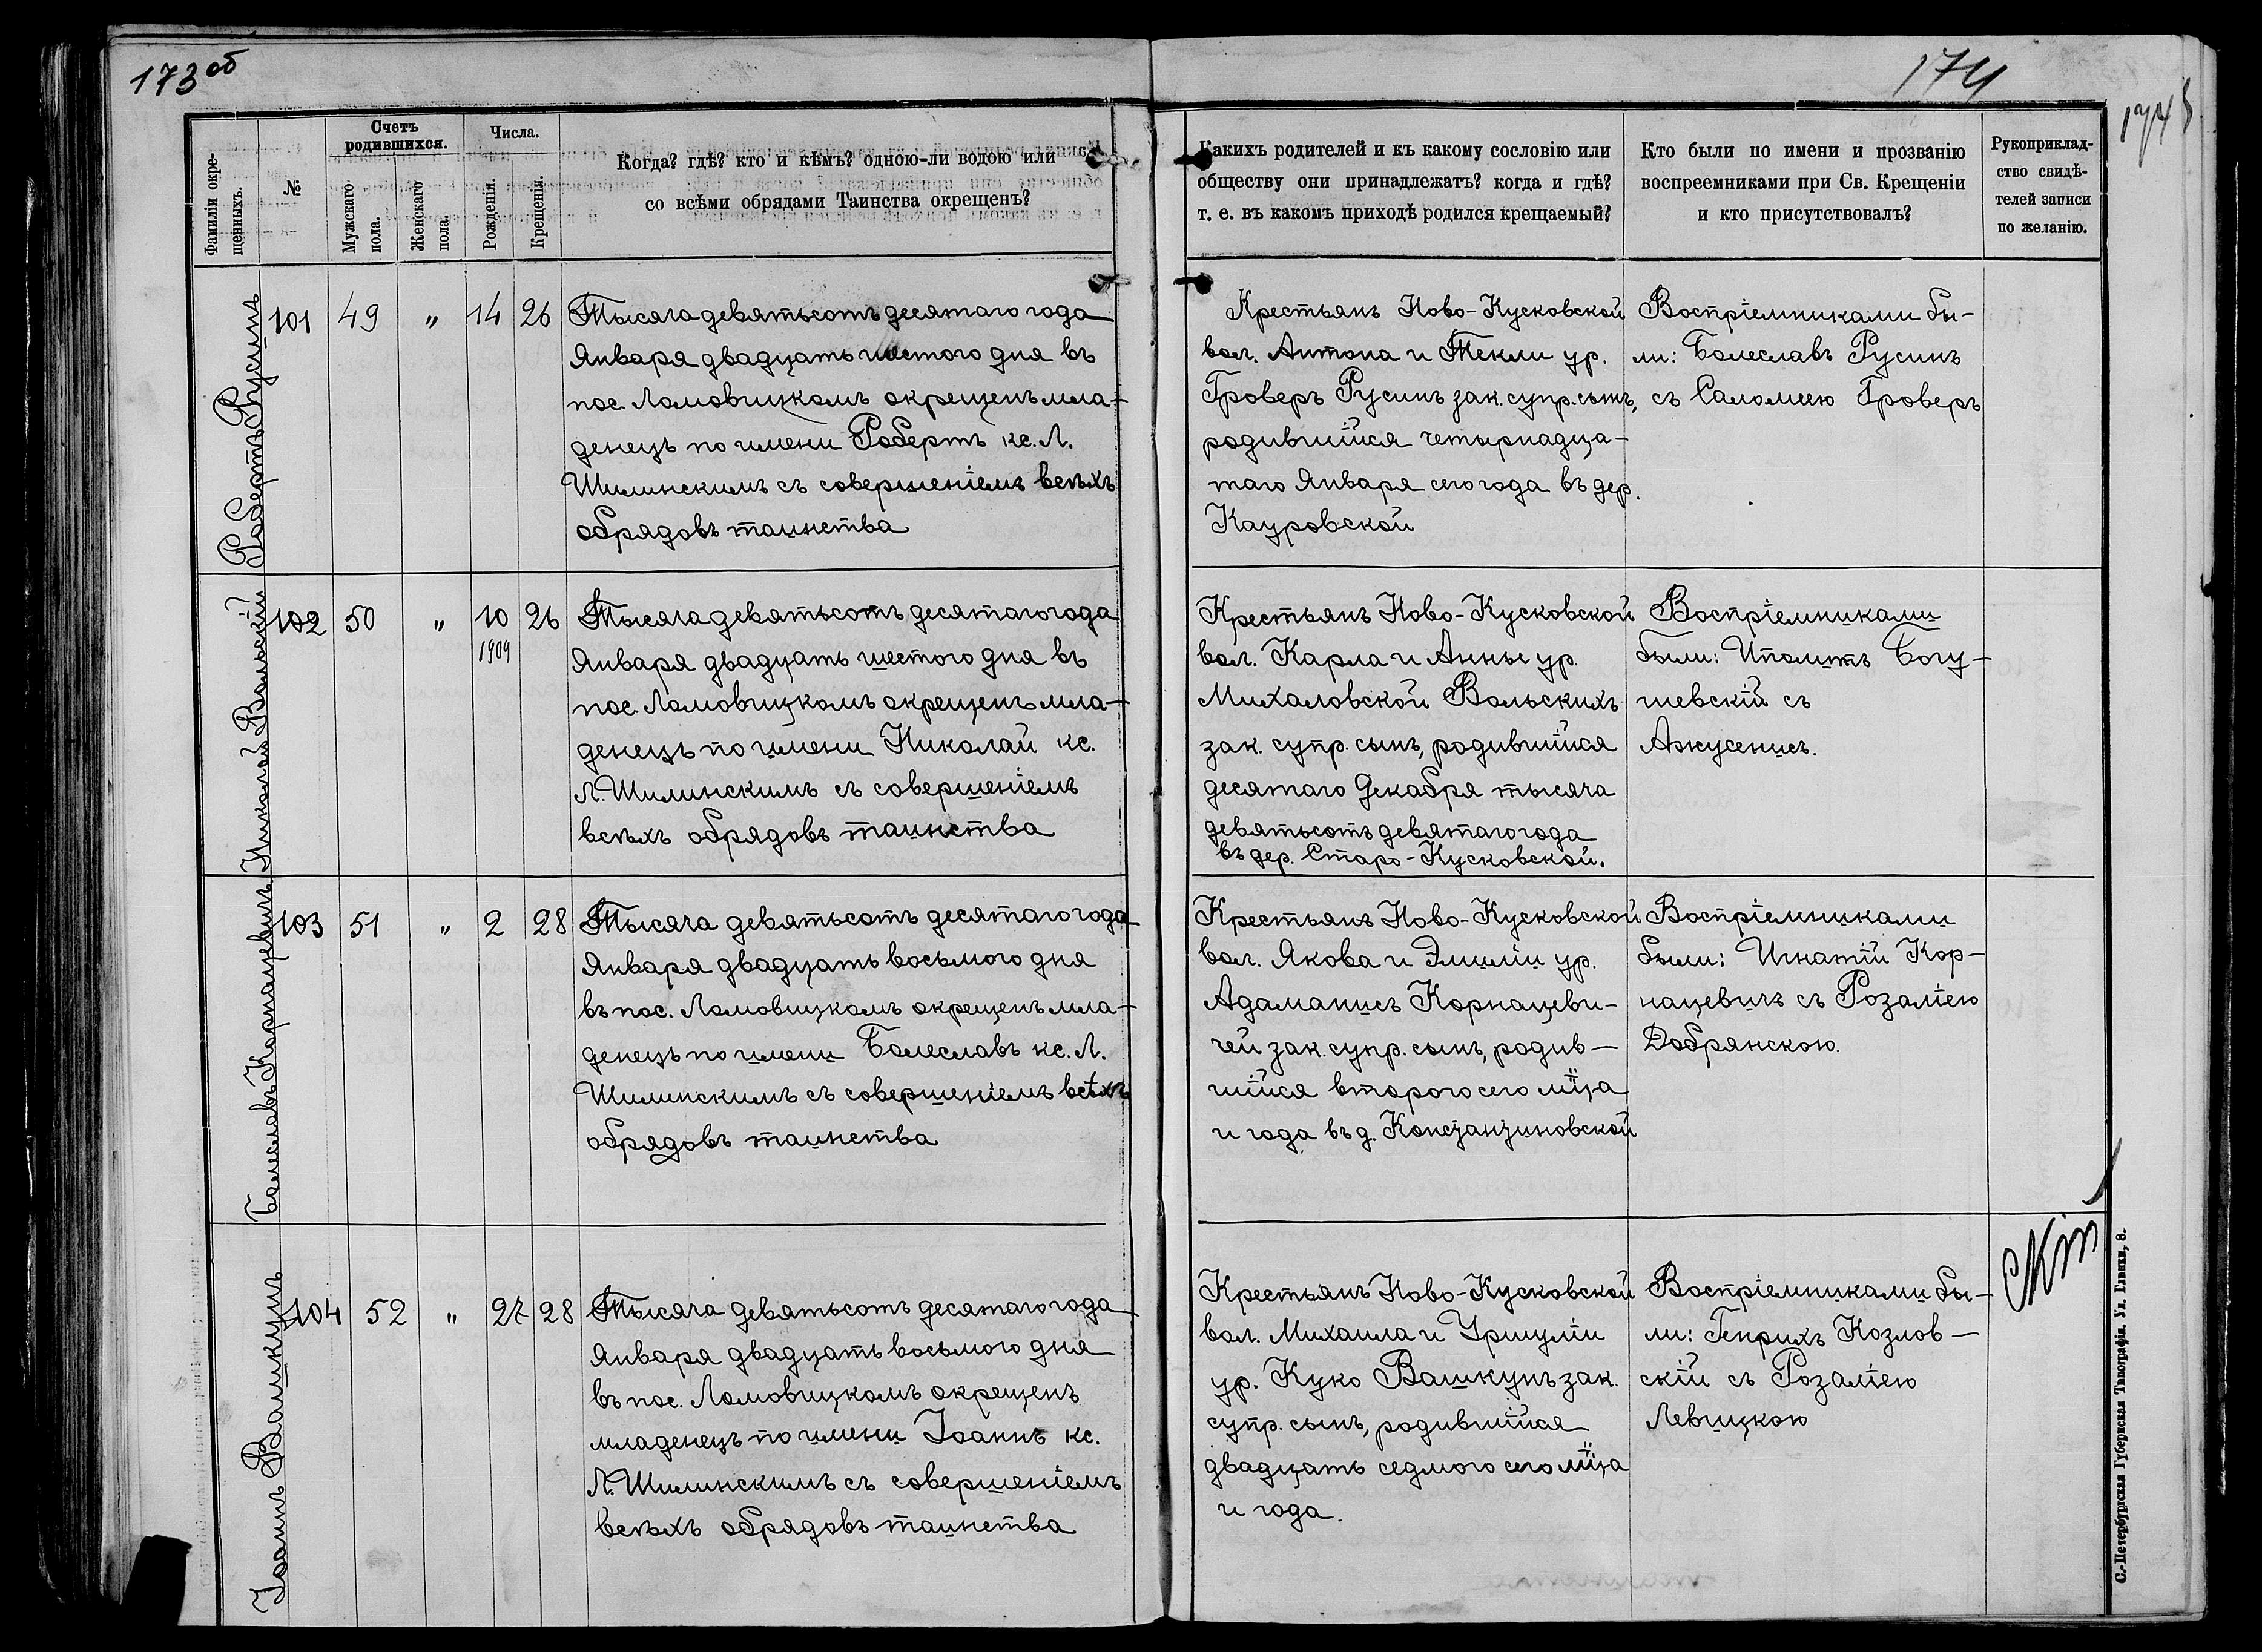 173 об
174
174
Фамиліи окре-
щенныхъ.
№
Счетъ
родившихся.
Мужскаго
пола.
Женскаго
пола.
Числа.
Рожденія.
Крещенія.
Когда? гдѣ? кто и кѣмъ? одною-ли водою или
со всѣми обрядами Таинства окрещенъ?
Какихъ родителей и къ какому сословію или
обществу они принадлежатъ? когда и гдѣ?
т. е. въ какомъ приходѣ родился крещаемый?
Кто были по имени и прозванію
воспреемниками при Св. Крещеніи
и кто присутствовалъ?
Рукоприклад-
ство свидѣ-
телей записи
по желанію.
Робертъ Русинъ
101 49 „ 14 26
Тысяча девятьсотъ десятаго года
Января двадцать шестого дня въ
пос. Ломовицкомъ окрещенъ мла-
денецъ по имени Робертъ кс. Л.
Шилинскимъ съ совершеніемъ всѣхъ
обрядовъ таинства
Крестьянъ Ново-Кусковской
вол. Антона и Текли ур.
Гроверъ Русинъ зак. супр. сынъ,
родившійся четырнадца-
таго Января сего года въ дер.
Кауровской
Воспріемниками бы-
ли: Болеславъ Русинъ
съ Саломеею Гроверъ
Николай Вольскій
102 50 „ 10 26
1909
Тысяча девятьсотъ десятаго года
Января двадцать шестого дня въ
пос. Ломовицкомъ окрещенъ мла-
денецъ по имени Николай кс.
Л. Шилинскимъ съ совершеніемъ
всѣхъ обрядовъ таинства
Крестьянъ Ново-Кусковской
вол. Карла и Анны ур.
Михаловской Вольскихъ
зак. супр. сынъ, родившійся
десятаго Декабря тысяча
девятьсотъ девятаго года
въ дер. Старо-Кусковской.
Воспріемниками
были: Иполитъ Богу-
шевскій съ
Болеславъ Корнацевичъ
103 51 „ 2 28
Тысяча девятьсотъ десятаго года
Января двадцать восьмого дня
въ пос. Ломовицкомъ окрещенъ мла-
денецъ по имени Болеславъ кс. Л.
Шилинскимъ съ совершеніемъ всѣхъ
обрядовъ таинства
Крестьянъ Ново-Кусковской
вол. Якова и Эмиліи ур.
Адаманисъ Корнацеви-
чей зак. супр. сынъ, родив-
шійся второго сего мѣца
и года въ д. Константиновской
Воспріемниками
были: Игнатій Кор-
нацевичъ съ Розаліею
Добрянскою.
Іоаннъ Вашкунъ
104 52 „ 27 28
Тысяча девятьсотъ десятаго года
Января двадцать восьмого дня
въ пос. Ломовицкомъ окрещенъ
младенецъ по имени Іоаннъ кс.
Л. Шилинскимъ съ совершеніемъ
всѣхъ обрядовъ таинства
Крестьянъ Ново-Кусковской
вол. Михаила и Уршули
ур. Куко Вашкунъ зак.
супр. сынъ, родившійся
двадцать седмого сего мѣца
и года.
Воспріемниками бы-
ли: Генрихъ Козлов-
скій съ Розаліею
Левицкою
С.-Петербургская Губернская Типографія. Ул. Глинки, 8.